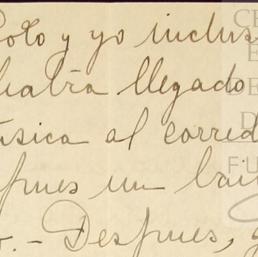 Soto y yo inclus
habra llegado
úsica al corred
spues un bai
o. - Despues, q
CE
E
DE
D
FU